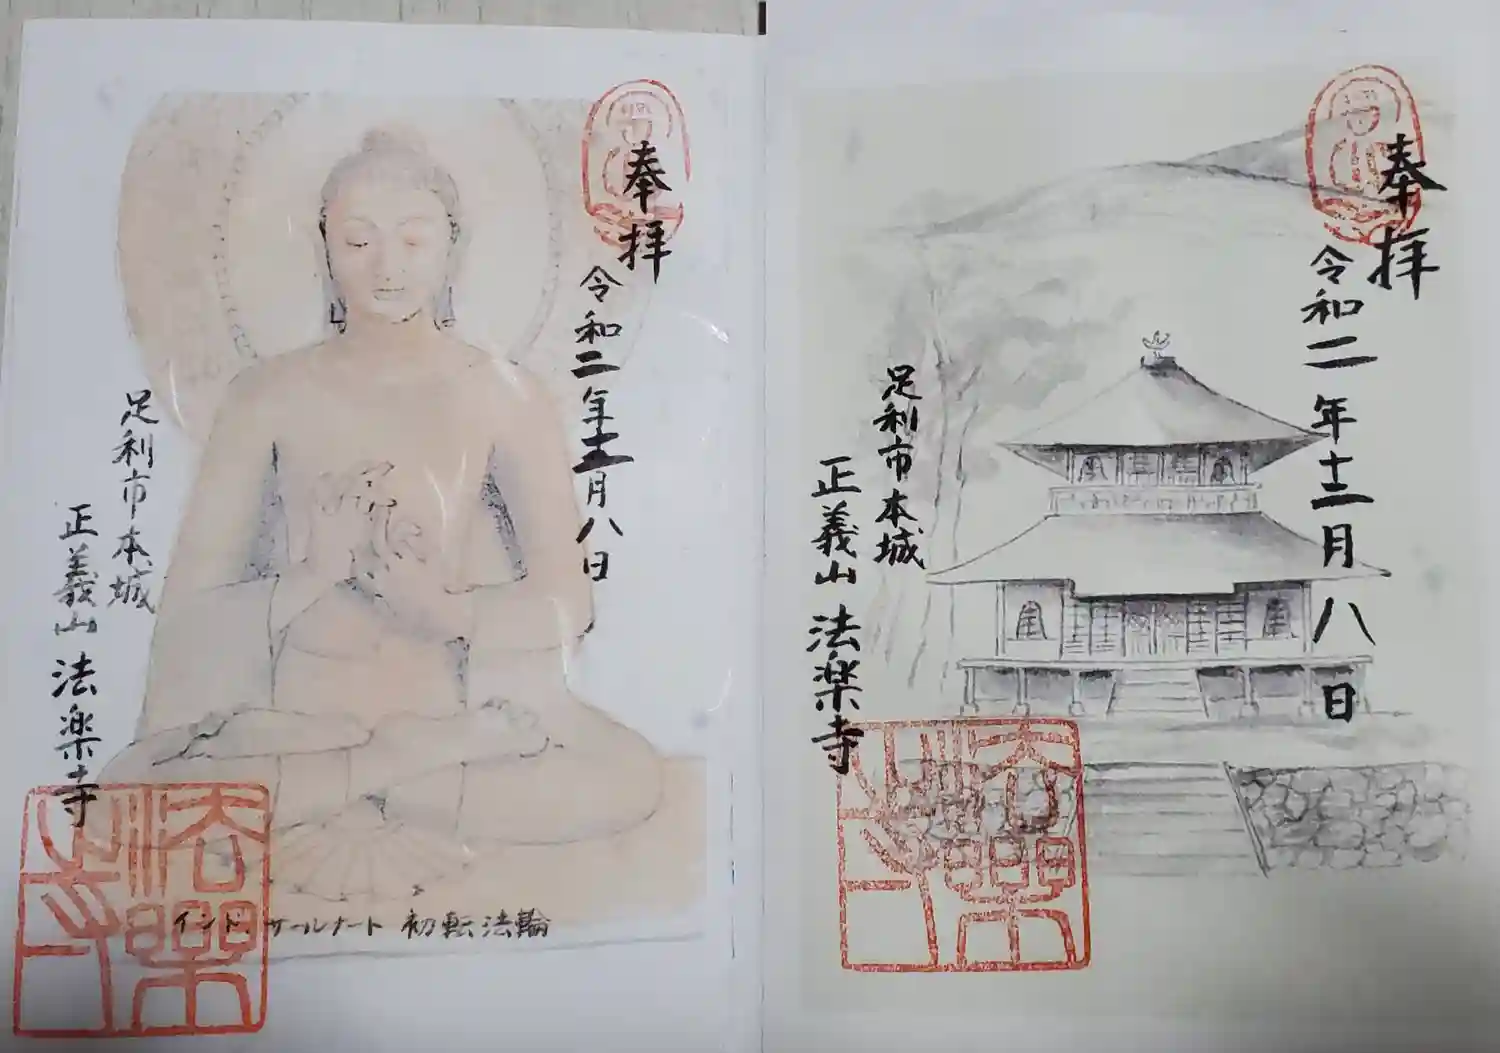 奉拝
令和二年十二月八日
足利市本城
正義山 法楽寺
インド サールナート 初転法輪
奉拝
令和二年十二月八日
足利市本城
正義山 法楽寺